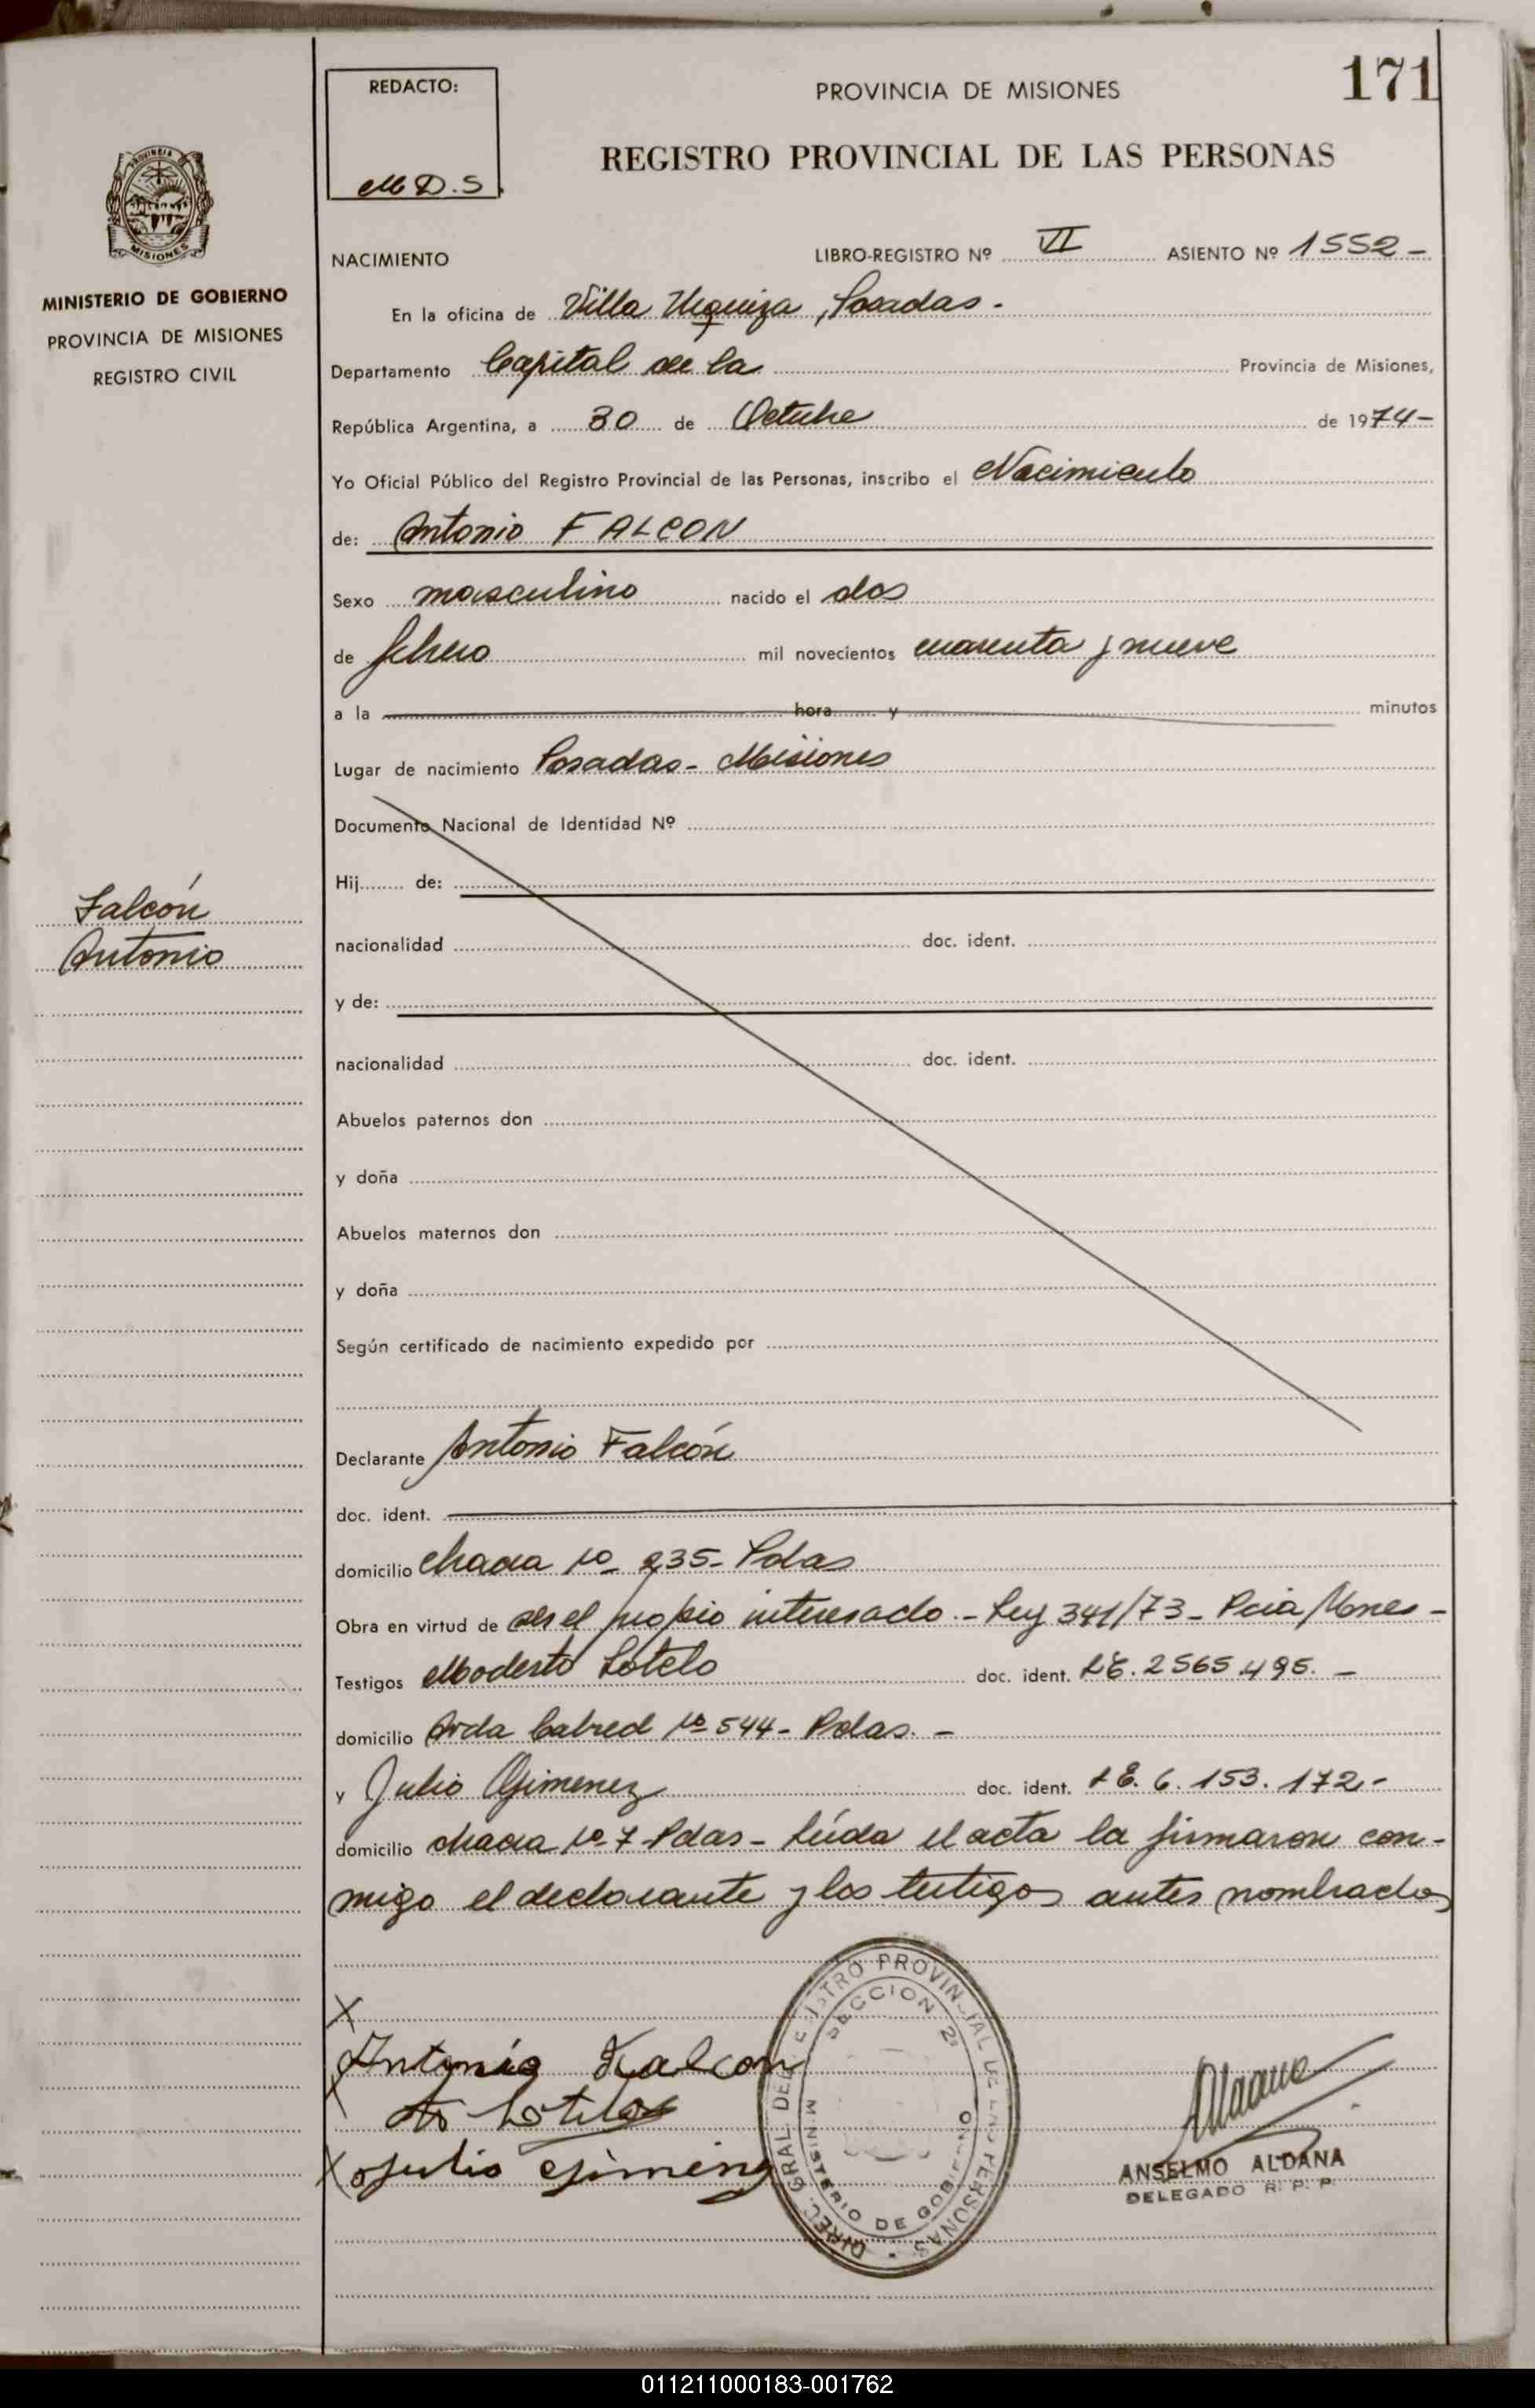 171
REDACTO:
M D. S.
PROVINCIA DE MISIONES
REGISTRO PROVINCIAL DE LAS PERSONAS
PROVINCIA DE
MISIONES
MINISTERIO DE GOBIERNO
PROVINCIA DE MISIONES
REGISTRO CIVIL
NACIMIENTO LIBRO-REGISTRO Nº VI ASIENTO Nº 1552-
En la oficina de Villa Urquiza, Posadas-
Departamento Capital de la Provincia de Misiones,
República Argentina, a 30 de Octubre de 1974-
Yo Oficial Público del Registro Provincial de las Personas, inscribo el Nacimiento
de: Antonio FALCON
Sexo masculino nacido el dos
de febrero mil novecientos cuarenta y nueve
a la hora y minutos
Lugar de nacimiento Posadas- Misiones
Documento Nacional de Identidad Nº
Hij de:
Falcón
Antonio
nacionalidad doc. ident.
y de:
nacionalidad doc. ident.
Abuelos paternos don
y doña
Abuelos maternos don
y doña
Según certificado de nacimiento expedido por
Declarante Antonio Falcón
doc. ident.
domicilio chacra Nº 235- Pdas
Obra en virtud de ser el propio interesado.- Ley 341/73- Pcia/Mnes-
Testigos Modesto Sotelo doc. ident. LE. 2565.495.-
domicilio Avda Cabred Nº 544- Pdas.-
y Julio Gimenez doc. ident. LE. 6.153.172.-
domicilio chacra Nº 7 Pdas- Leída el acta la firmaron con-
migo el declarante y los testigos antes nombrados
X
Antonio Falcon
Sotelo
X Julio Gimenez
DIREC. GRAL. DEL REGISTRO PROVINCIAL DE LAS PERSONAS
SECCION 2ª
MINISTERIO DE GOBIERNO
Aldana
ANSELMO ALDANA
DELEGADO R. P. P.
011211000183-001762